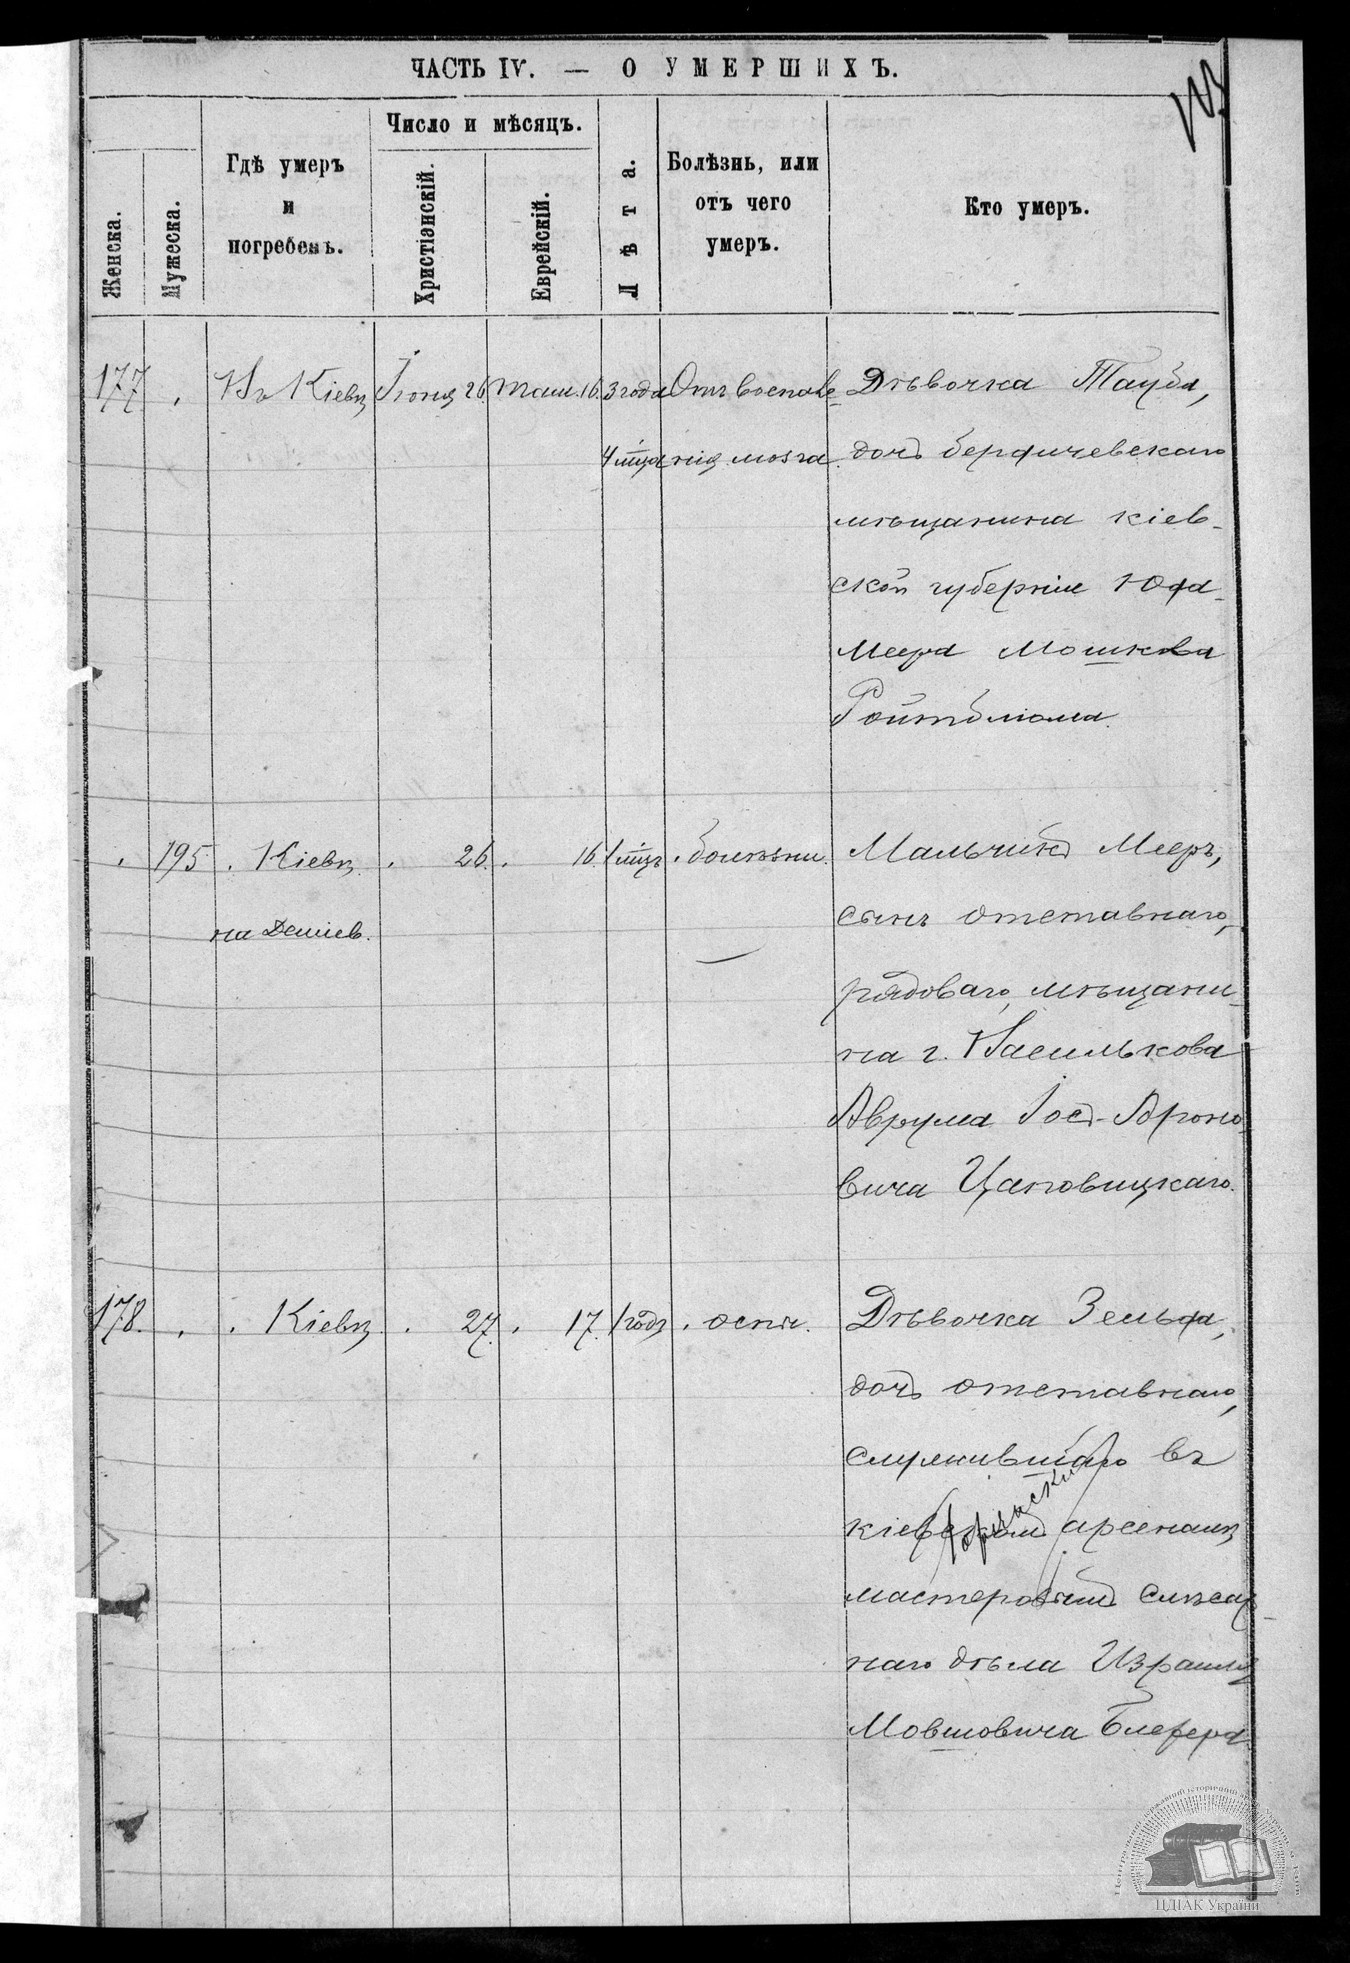 ЧАСТЬ IV. — О УМЕРШИХЪ.
Женска.
Мужеска.
Гдѣ умеръ
и
погребенъ.
Число и мѣсяцъ.
Христіэнскій.
Еврейскій.
Лѣта.
Болѣзнь, или
отъ чего
умеръ.
Кто умеръ.
177 Въ Кіевѣ Іюня 26. Там. 16. 3 года Отъ воспале- Дѣвочка Тауба,
4 мѣца нія мозга. дочь бердичевскаго
мѣщанина кіев-
ской губерніи Юда-
Меера Мошкова
Ройтблюма.
195 Кіевѣ. 26. 16. 1 мѣцъ болѣзни. Мальчикъ Мееръ,
на Деміев. сынъ отставнаго,
рядоваго, мѣщани-
на г. Василькова
Аврума Іос-Ароно-
вича Цановицкаго.
178. Кіевѣ 27. 17. 1 годъ оспы. Дѣвочка Зельда,
дочь отставнаго,
служившаго въ
кіевскомъ арсеналѣ
мастеровымъ слѣсар-
наго дѣла Израиля
Мовшовича Блефера.
ЦДІАК України